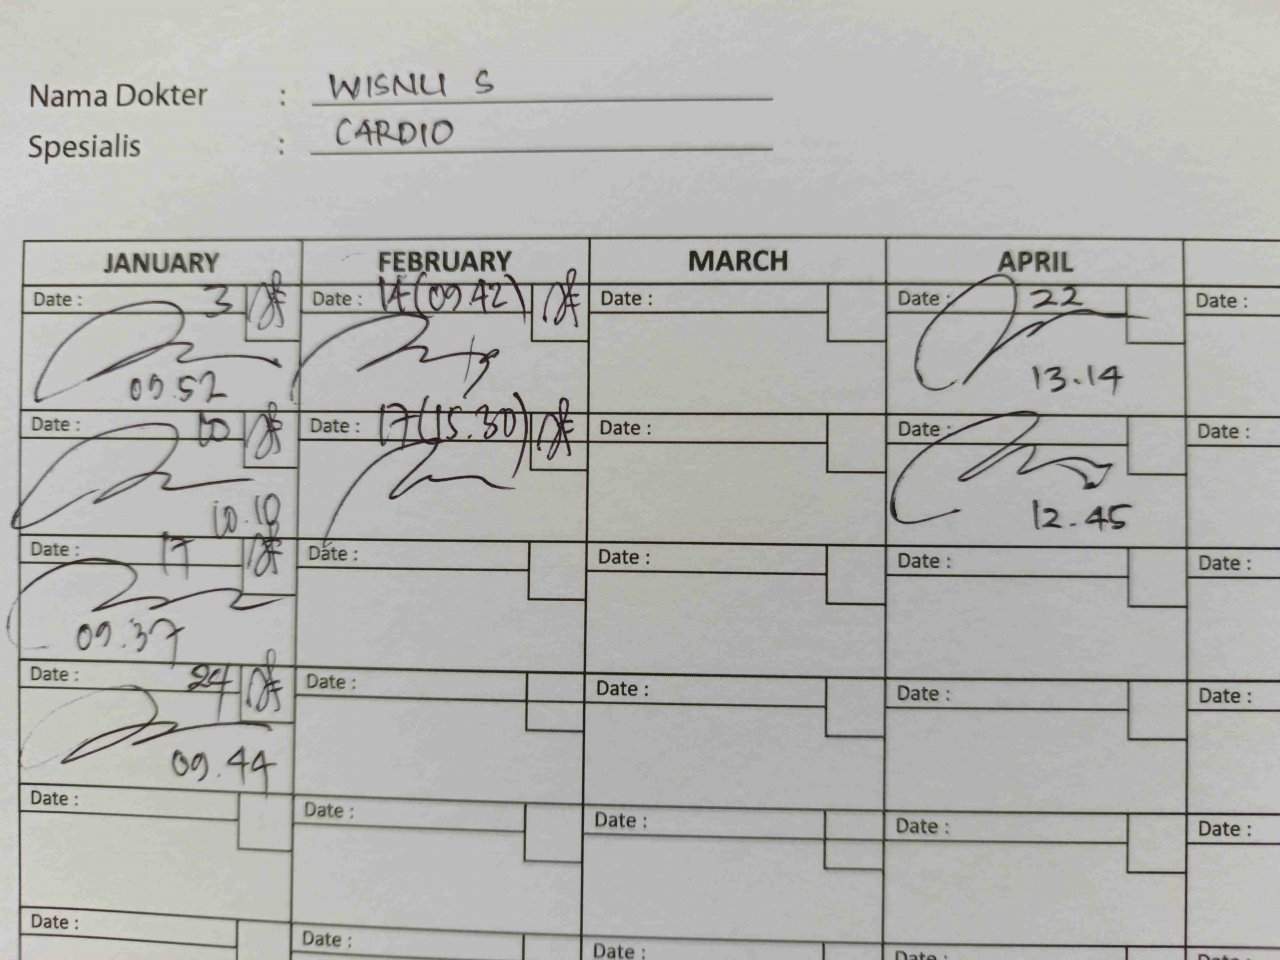 Nama Dokter : WISNU S
Spesialis : CARDIO
JANUARY FEBRUARY MARCH APRIL
Date : 3 Date : 14 (09.42) Date : Date : 22 Date :
09.52 13.14
Date : 10 Date : 17 (15.30) Date : Date : Date :
10.18 12.45
Date : 17 Date : Date : Date : Date :
09.37
Date : 24 Date : Date : Date : Date :
09.44
Date : Date : Date : Date : Date :
Date : Date : Date : Date : Date :